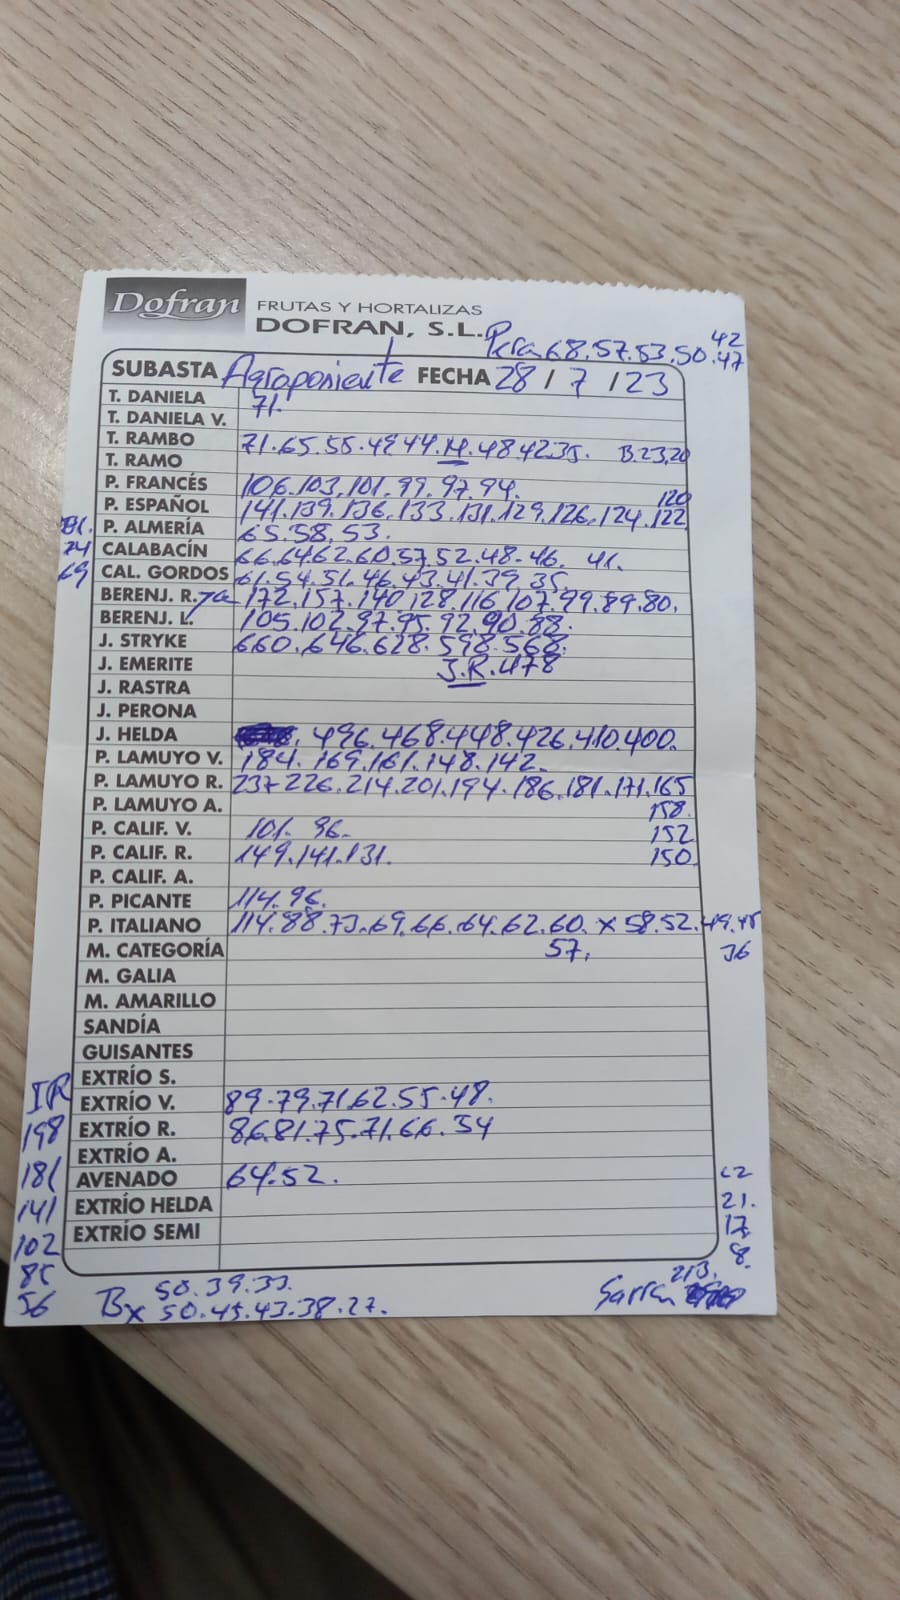 Dofran FRUTAS Y HORTALIZAS
DOFRAN, S.L.
Pera 68.57.53.50.47
42
SUBASTA Agroponiente FECHA 28 / 7 / 23
T. DANIELA 71.
T. DANIELA V.
T. RAMBO 71.65.55.49 44.M.48.42 35. B.23,20
T. RAMO
P. FRANCÉS 106.103.101.99.97.94.
120
P. ESPAÑOL 141.139.136.133.131.129.126.124.122
P. ALMERÍA 65.58.53.
74 CALABACÍN 66.64.62.60.57.52.48.46. 41.
69 CAL. GORDOS 61.54.51.46.43.41.39.35.
BERENJ. R. 172.157.140.128.116.107.99.89.80.
BERENJ. L. 105.102.97.95.92.90.88.
J. STRYKE 660.646.628.598.568.
J. EMERITE J.R.478
J. RASTRA
J. PERONA
J. HELDA 496.468.448.426.410.400.
P. LAMUYO V. 184.169.161.148.142.
P. LAMUYO R. 237 226.214.201.194.186.181.171.165
P. LAMUYO A. 158.
P. CALIF. V. 101. 96. 152
P. CALIF. R. 149.141.131. 150
P. CALIF. A.
P. PICANTE 114.96.
P. ITALIANO 114.88.73.69.66.64.62.60. x 58.52.49.45
M. CATEGORÍA 57. 36
M. GALIA
M. AMARILLO
SANDÍA
GUISANTES
EXTRÍO S.
IR
EXTRÍO V. 89.79.71.62.55.48.
198 EXTRÍO R. 86.81.75.71.66.54
EXTRÍO A.
181 AVENADO 64.52.
141 EXTRÍO HELDA 21.
102 EXTRÍO SEMI 17.
8.
85
56
50.39.33.
Bx 50.45.43.38.27.
213.